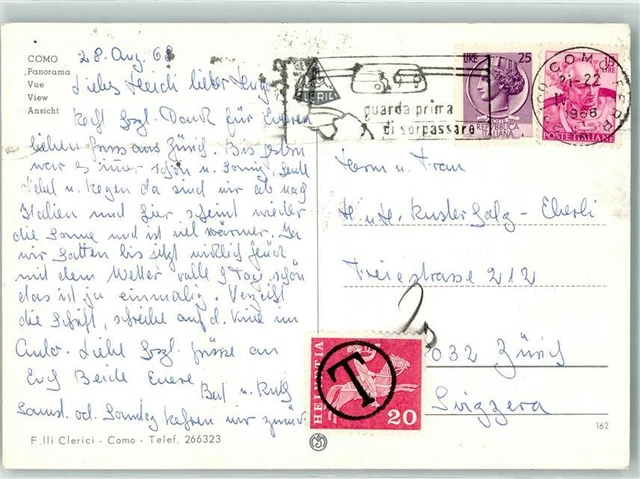 COMO
Panorama
Vue
View
Ansicht
28. Aug. 68
Liebes Heidi lieber
Dank für Eueren
lieben aus Zürich. Bis gestern
war es immer schön u. sonnig, heute
Nebel u. Regen da sind wir ab nach
Italien und hier scheint wieder
die Sonne und ist viel wärmer. Ja
wir hatten bis jetzt wirklich Glück
mit dem Wetter volle 9 Tag schön
das ist ja einmalig. Verzeiht
die Schrift, schreibe auf d. Knie im
Auto. Liebe Grüsse an
Euch Beide Euere
u. Ruth
Samst. od. Sonntag kehren wir zurück
F.lli Clerici - Como - Telef. 266323
guarda prima
di sorpassare
LIRE 25
REPVBBLICA
ITALIANA
15
LIRE
POSTE ITALIANE
COMO FERR
21-22
1968
Herrn u. Frau
H. u. H. Kuster - Eberli
Freiestrasse 212
8032 Zürich
Svizzera
HELVETIA
T
20
162